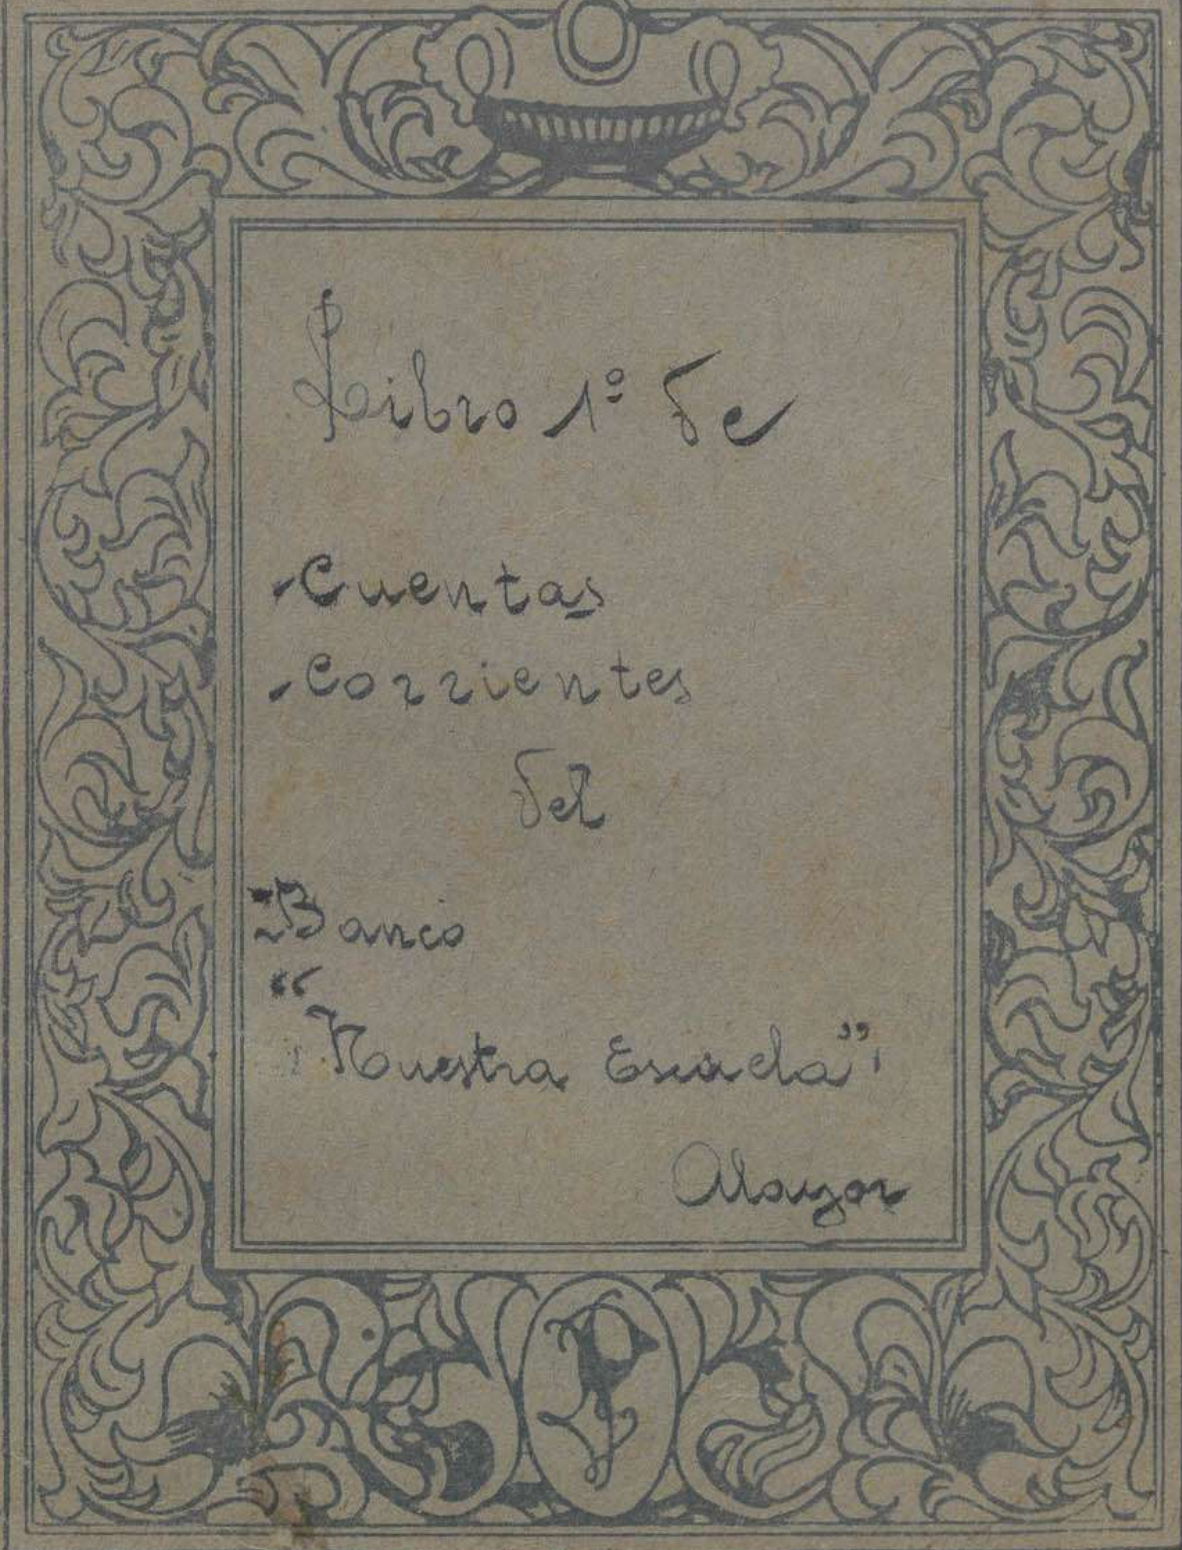 Libro 1º de
Cuentas
Corrientes
del
Banco
“
Nuestra Escuela”
Mayor